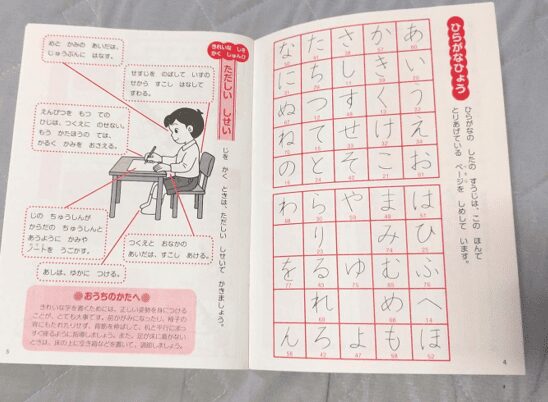 ひらがなひょう
ひらがなの したの すうじは、この ほんで
とりあげている ページを しめして います。
あいうえお
かきくけこ
さしすせそ
たちつてと
なにぬねの
はひふへほ
まみむめも
やゆよ
らりるれろ
わをん
4
きれいな じを
かく しゅんび
ただしい しせい
じを かく ときは、ただしい しせいで かきましょう。
めと かみの あいだは、
じゅうぶんに はなす。
せすじを のばして いすの
せから すこし はなして
すわる。
えんぴつを もつ ての
ひじは、つくえに のせない。
もう かたほうの ては、
かるく かみを おさえる。
じの ちゅうしんが
からだの ちゅうしんと
あうように かみや
ノートを うごかす。
つくえと おなかの
あいだは、すこし あける。
あしは、ゆかに つける。
おうちのかたへ
きれいな字を書くためには、正しい姿勢を身につける
ことが、とても大事です。前かがみになったり、椅子の
背にもたれたりせず、背筋を伸ばして、机と平行にまっ
すぐ座るように指導しましょう。また、足が床に着かない
ときは、床の上に空き箱などを置いて、調節しましょう。
5